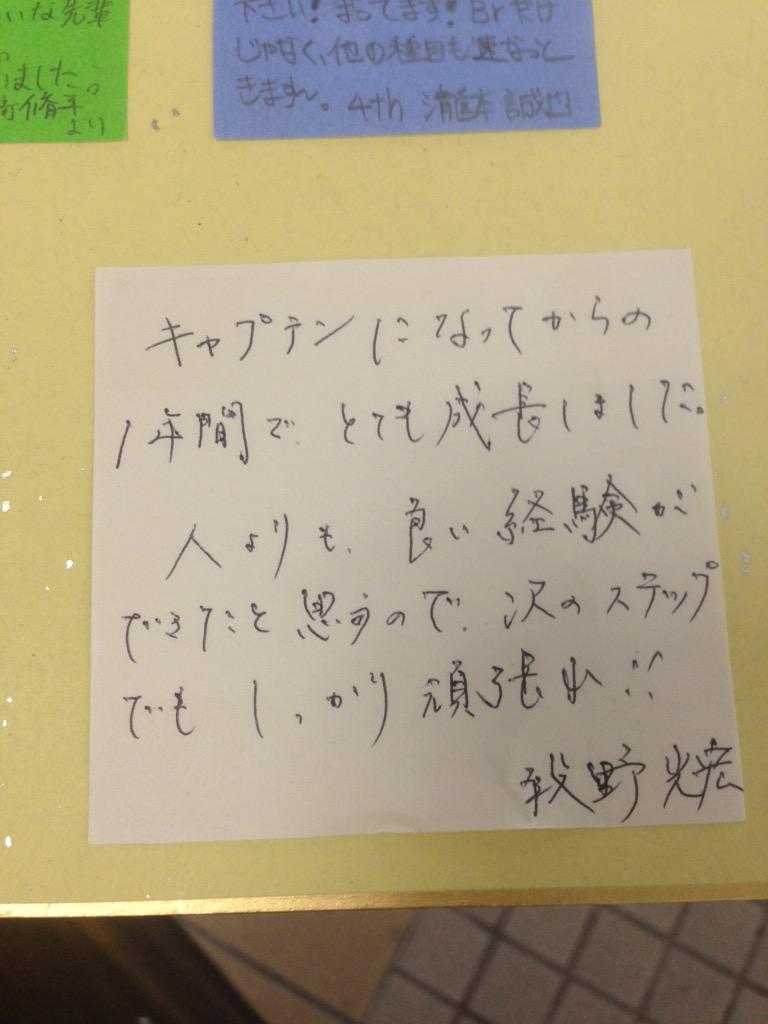 いな先輩
ました。
修平
より
下さい!まってます!Brだけ
じゃなく、他の種目も速なっと
きますん。 4th 瀧本 誠也
キャプテンになってからの
1年間で、とても成長しました。
人よりも、良い経験が
できたと思うので、次のステップ
でもしっかり頑張れ!!
牧野 光宏